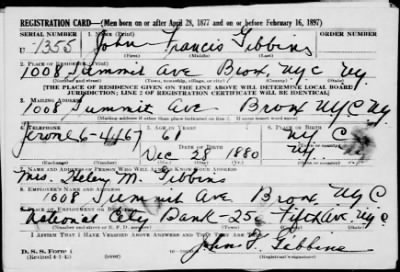 REGISTRATION CARD—(Men born on or after April 28, 1877 and on or before February 16, 1897)
SERIAL NUMBER 1. NAME (Print)
U 1355 John Francis Gibbins
(First) (Middle) (Last)
2. PLACE OF RESIDENCE (Print)
1008 Summit Ave Bronx NYC NY
(Number and street) (Town, township, village, or city) (County) (State)
[THE PLACE OF RESIDENCE GIVEN ON THE LINE ABOVE WILL DETERMINE LOCAL BOARD
JURISDICTION; LINE 2 OF REGISTRATION CERTIFICATE WILL BE IDENTICAL]
3. MAILING ADDRESS
1008 Summit Ave Bronx NYC NY
4. TELEPHONE 5. AGE IN YEARS 6. PLACE OF BIRTH
Jerome 6-4467 61 NYC
DATE OF BIRTH
Dec 28 1880 NY
7. NAME AND ADDRESS OF PERSON WHO WILL ALWAYS KNOW YOUR ADDRESS
Mrs. Helen M. Gibbins
1008 Summit Ave Bronx NYC
8. EMPLOYER'S NAME AND ADDRESS
National City Bank-
9. PLACE OF EMPLOYMENT OR BUSINESS
Fifth Ave NYC
(Number and street or R. F. D. number) (Town) (County) (State)
I AFFIRM THAT I HAVE VERIFIED ABOVE ANSWERS AND THAT THEY ARE TRUE.
D. S. S. Form 4
(Revised 4-1-42)
John F. Gibbins